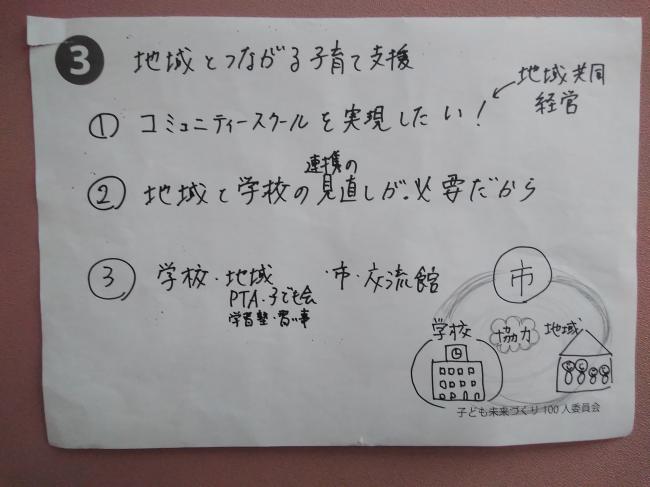 3 地域とつながる子育て支援
① コミュニティースクールを実現したい！
地域共同
経営
連携の
② 地域と学校の見直しが必要だから
③ 学校・地域 ・市・交流館
PTA・子ども会
学習塾・習い事
市
学校
協力
地域
子ども未来づくり100人委員会